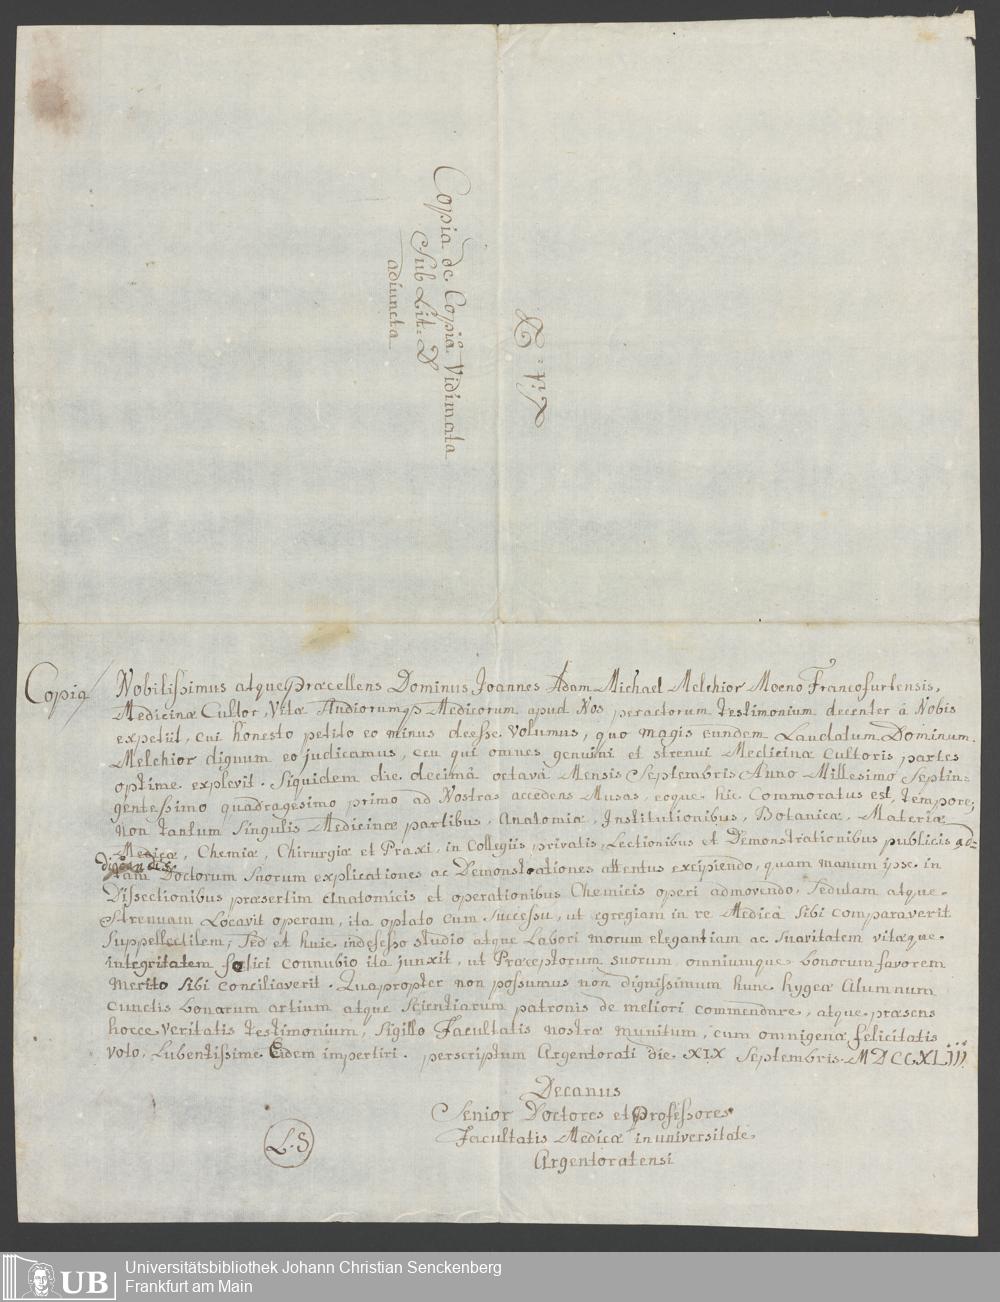 Copia de Copia Vidimata
Sub Lit: D
adiuncta
Lit: D
Copia
Nobilissimus atque Præcellens Dominus Joannes Adam Michael Melchior Moeno Francofurtensis,
Medicinæ Cultor, Vitæ Studiorumq Medicorum apud Nos peractorum testimonium decenter à Nobis
expetiit, cui honesto petito eo minus deesse volumus, quo magis eundem Laudatum Dominum
Melchior dignum eo judicamus, ceu qui omnes genuini et strenui Medicinæ Cultoris partes
optime explevit. Siquidem die decimâ octavâ Mensis Septembris Anno Millesimo Septin-
gentessimo quadragesimo primo ad Nostras accedens Musas, eoque hic Commoratus est, tempore;
Non tantum singulis Medicinæ partibus, Anatomiæ, Institutionibus, Botanicæ, Materiæ
Medicæ, Chemiæ, Chirurgiæ et Praxi, in Collegiis privatis, Lectionibus et Demonstrationibus publicis ad-
digcendis:
tam Doctorum Suorum explicationes ac Demonstrationes attentus excipiendo, quam manum ipse in
Dissectionibus præsertim Anatomicis et operationibus Chemicis operi admovendo, Sedulam atque
Strenuam Locavit operam, ita optato cum successu, ut egregiam in re Medicâ sibi comparaverit
Suppellectilem; Sed et huic indefesso studio atque Labori morum elegantiam ac Suavitatem vitæque
integritatem fœlici connubio ita junxit, ut Præceptorum suorum omniumque bonorum favorem
merito sibi conciliaverit. Quapropter non possumus non dignissimum hunc hygeæ Alumnum
cunctis bonarum artium atque Scientiarum patronis de meliori commendare, atque præsens
hocce veritatis testimonium, Sigillo Facultatis nostræ munitum, cum omnigenæ felicitatis
voto, Lubentissime Eidem impertiri. perscriptum Argentorati die XIX Septembris MDCCXLIII
Decanus
Senior Doctores et Professores
Facultatis Medicæ in universitate
Argentoratensi
L.S
UB
Universitätsbibliothek Johann Christian Senckenberg
Frankfurt am Main